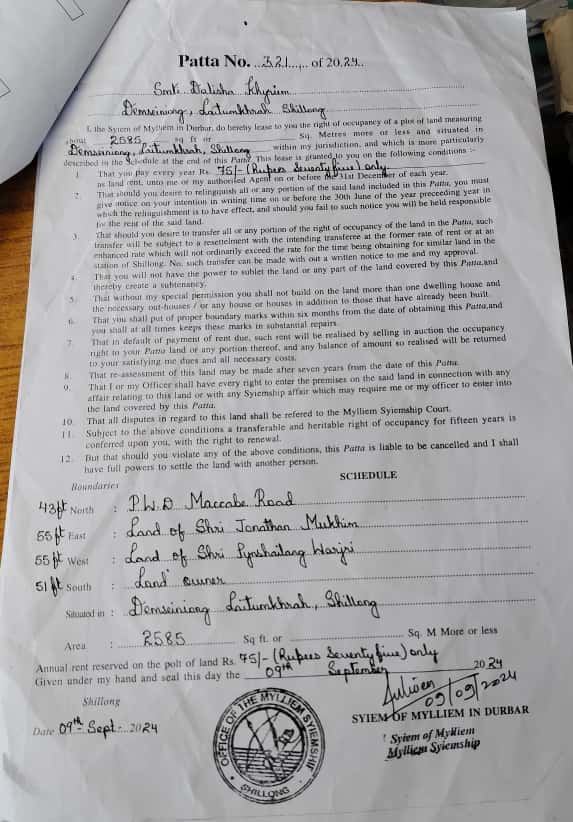 Patta No. 321 of 2024
Smti. Dalisha Khyriem
Demseiniong, Laitumkhrah Shillong
I, the Syiem of Mylliem in Durbar, do hereby lease to you the right of occupancy of a plot of land measuring
about 2585 sq ft or Sq. Metres more or less and situated in
Demseiniong, Laitumkhrah, Shillong within my jurisdiction, and which is more particularly
described in the Schedule at the end of this Patta. This lease is granted to you on the following conditions :-
1. That you pay every year Rs. 75/- (Rupees Seventy five) only
as land rent, unto me or my authorised Agent on or before the 31st December of each year.
2. That should you desire to relinguish all or any portion of the said land included in this Patta, you must
give notice on your intention in writing time on or before the 30th June of the year preceeding year in
which the relinguishment is to have effect, and should you fail to such notice you will be held responsible
for the rent of the said land.
3. That should you desire to transfer all or any portion of the right of occupancy of the land in the Patta, such
transfer will be subject to a resettelment with the intending transferee at the former rate of rent or at an
enhanced rate which will not ordinarily exceed the rate for the time being obtaining for similar land in the
station of Shillong. No. such transfer can be made with out a written notice to me and my approval.
4. That you will not have the power to sublet the land or any part of the land covered by this Patta, and
thereby create a subtenancy.
5. That without my special permission you shall not build on the land more than one dwelling house and
the necessary out-houses / or any house or houses in addition to those that have already been built.
6. That you shall put of proper boundary marks within six months from the date of obtaining this Patta, and
you shall at all times keeps these marks in substantial repairs.
7. That in default of payment of rent due, such rent will be realised by selling in auction the occupancy
right to your Patta land or any portion thereof, and any balance of amount so realised will be returned
to your satisfying me dues and all necessary costs.
8. That re-assessment of this land may be made after seven years from the date of this Patta.
9. That I or my Officer shall have every right to enter the premises on the said land in connection with any
affair relating to this land or with any Syiemship affair which may require me or my officer to enter into
the land covered by this Patta.
10. That all disputes in regard to this land shall be refered to the Mylliem Syiemship Court.
11. Subject to the above conditions a transferable and heritable right of occupancy for fifteen years is
conferred upon you, with the right to renewal.
12. But that should you violate any of the above conditions, this Patta is liable to be cancelled and I shall
have full powers to settle the land with another person.
SCHEDULE
Boundaries
43ft North : P.W.D Maccabe Road
55ft East : Land of Shri Jonathan Mukhim
55 ft West : Land of Shri Pynshailang Warjri
51 ft South : Land owner
Situated in : Demseiniong Laitumkhrah, Shillong
Area : 2585 Sq ft. or Sq. M More or less
Annual rent reserved on the polt of land Rs. 75/- (Rupees Seventy five) only
Given under my hand and seal this day the 09th September 2024
Shillong
09/09/2024
SYIEM OF MYLLIEM IN DURBAR
Date 09th Sept. 2024
Syiem of Mylliem
Mylliem Syiemship
OFFICE OF THE MYLLIEM SYIEMSHIP
SHILLONG